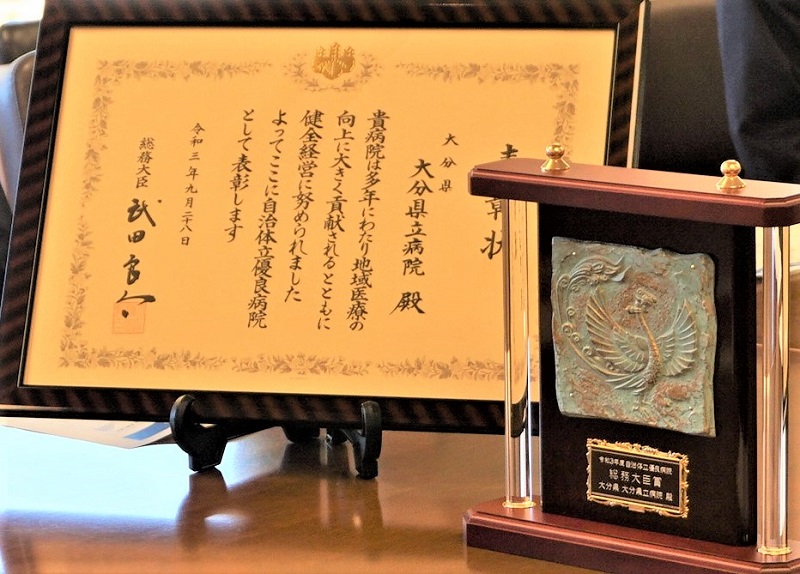 表彰状
大分県
大分県立病院 殿
貴病院は多年にわたり地域医療の
向上に大きく貢献されるとともに
健全経営に努められました
よってここに自治体立優良病院
として表彰します
令和三年九月二十八日
総務大臣 武田良太
令和3年度自治体立優良病院
総務大臣賞
大分県 大分県立病院 殿